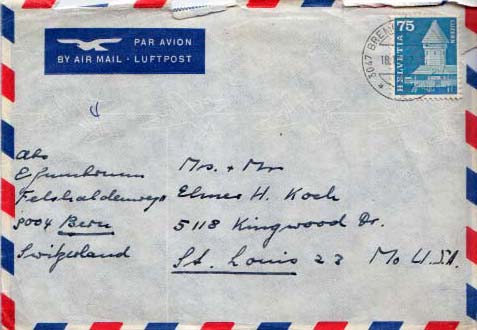 PAR AVION
BY AIR MAIL · LUFTPOST
75
HELVETIA
LUZERN
3047 BREM
18.
Abs
Felshaldenweg
3004 Bern
Switzerland
Mrs. + Mr
Elmer H. Koch
5118 Kingwood Dr.
St. Louis 23 Mo U.S.A.